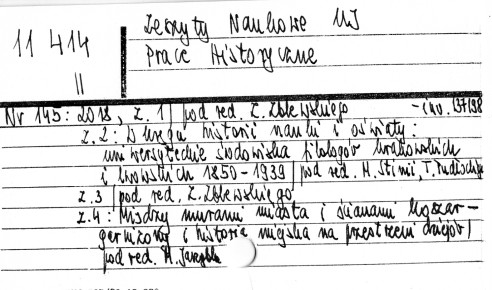 Zeszyty Naukowe UJ
11 414
Prace Historyczne
II
Nr 145: 2018, z. 1 | pod red. Z. Zblewskiego - inw. 137/98
z. 2: W kręgu historii nauki i oświaty:
uniwersyteckie środowiska filologów krakowskich
i lwowskich 1850-1939 | pod red. H. Stinii, T.
z. 3 | pod red. Z. Zblewskiego
z. 4: Między murami miasta i ścianami koszar-
garnizony i historia miejska na przestrzeni dziejów |
pod red. M.